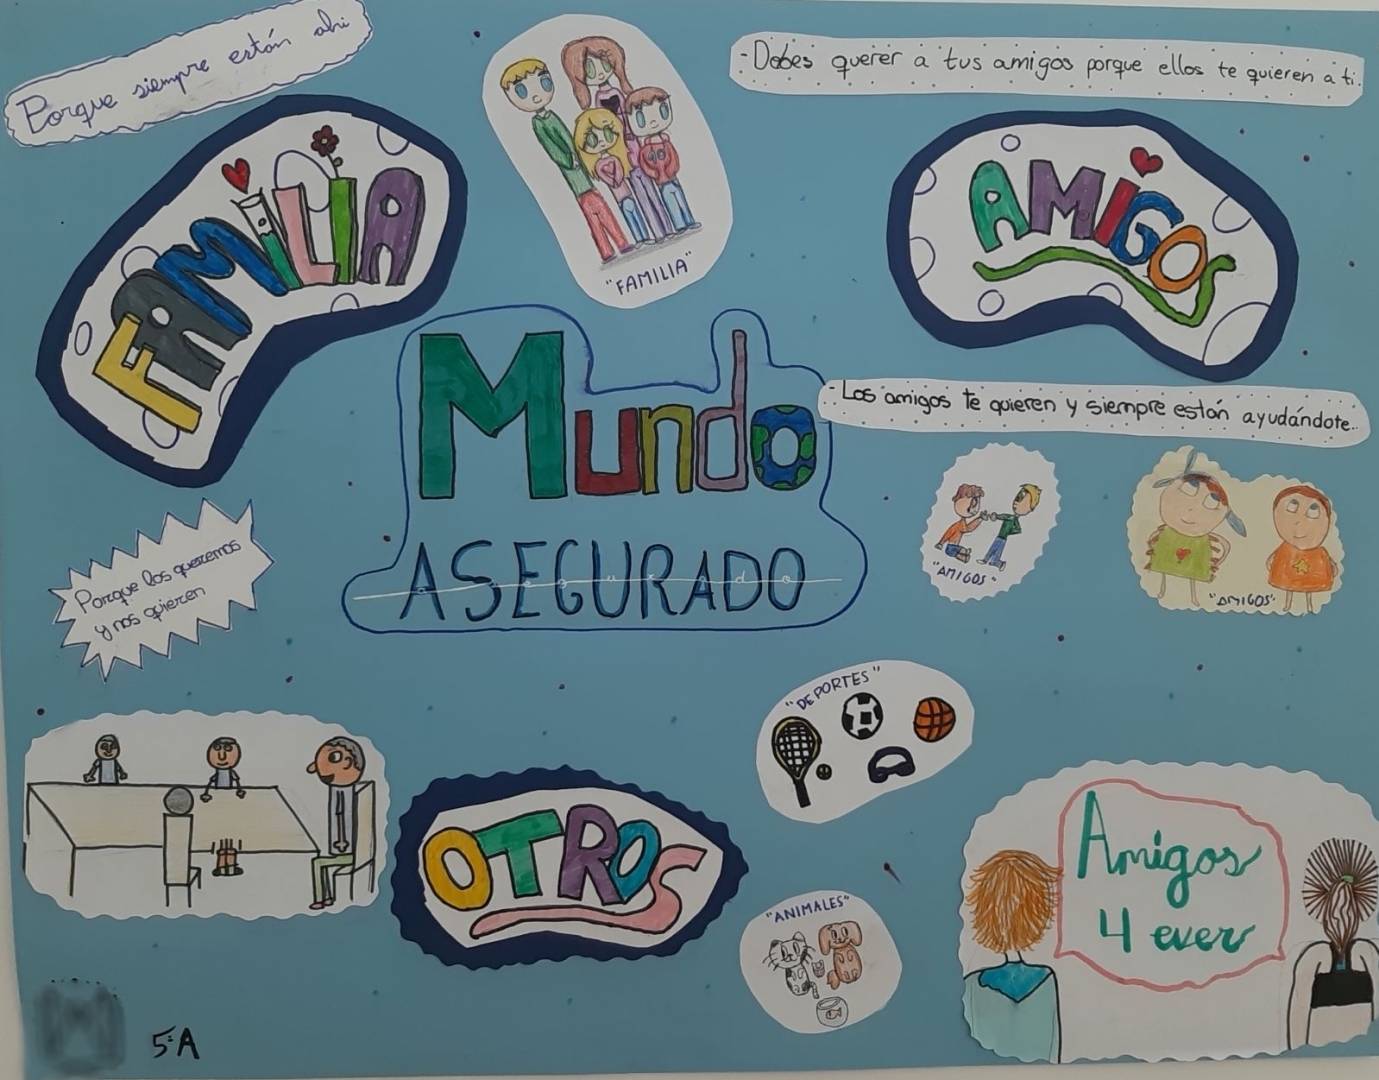 Porque siempre están ahi
FAMILIA
"FAMILIA"
- Debes querer a tus amigos porque ellos te quieren a ti.
AMIGOS
Mundo
ASEGURADO
- Los amigos te quieren y siempre están ayudándote..
"AMIGOS"
"AMIGOS"
Porque los queremos
y nos quieren
"DEPORTES"
OTROS
"ANIMALES"
Amigos
4 ever
5ºA